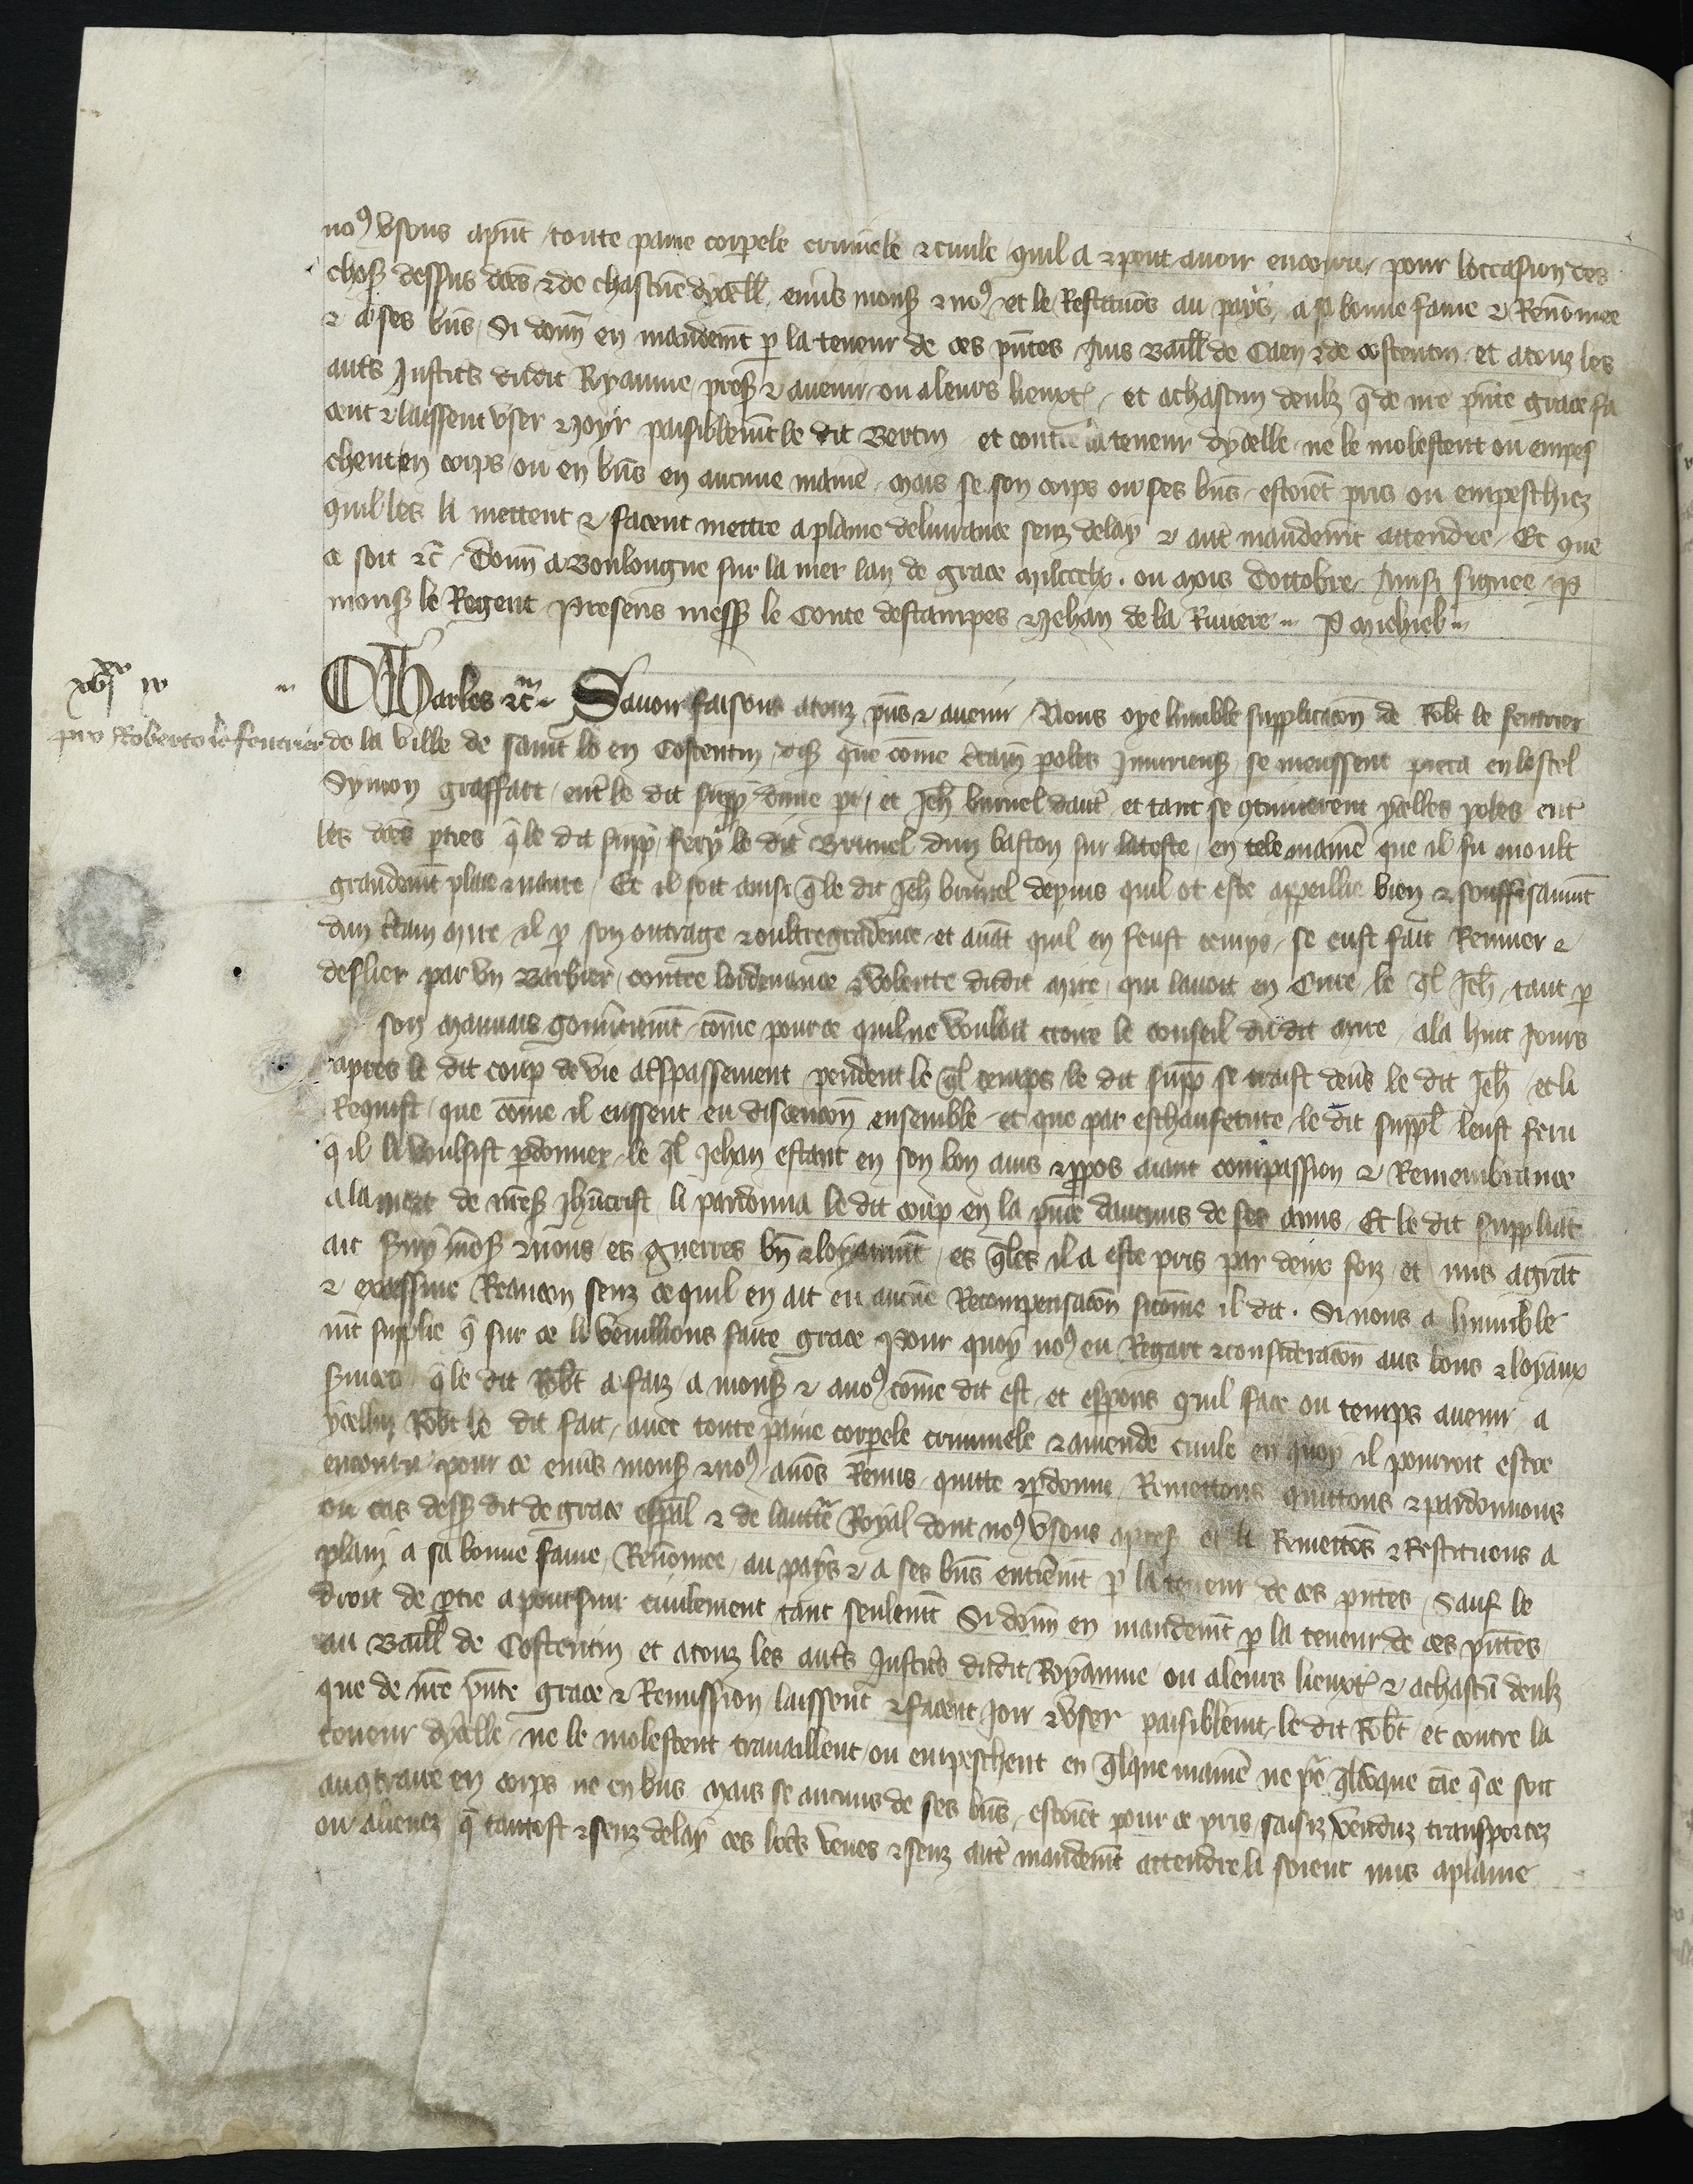 no⁹ usons a pñt toute paine corpele criminele ⁊ civile quil a ⁊ peut avoir encouru pour loccasion des
choses dessus dc̃es ⁊ de chascune dycell̃ envs mons̃ ⁊ no⁹ et le Restituõs au pays a sa bonne fame ⁊ Renõmee
⁊ a ses bñs Si donñ en mandem̃t p̱ la teneur de ces pñtes Aus Baill̃ de Caen ⁊ de costentin et a touz les
autˢ Justicˢ dudit Royaume pres̃ ⁊ avenir ou a leurs lieuxt̃ et a chascun deulz q̃ de nr̃e pñte grace fa
cent ⁊ laissent user ⁊ joyr paisiblem̃t le dit Bertin et contre la teneur dycelle ne le molestent ou empes
chent en corps ou en bñs en aucune manie᷑ mais se son corps ou ses bñs estoiẽt pris ou empeschiez
quil les li mettent ⁊ facent mettre a plaine delivrance senz delay ⁊ autˢ mandem̃t attendre Et que
ce soit ⁊c̃ Donñ a Bouloigne sur la mer lan de grace mil ccc lx. ou mois dottobre Ainsi signee p̱
mons̃ le Regent Presens mess̃ le Conte destampes ⁊ Jehan de la Riviere .. P Michiel ..
xviˣˣ iv
pro Roberto le feutrier
Charles ⁊c̃ .. Savoir faisons a touz pñs ⁊ avenir Nous oye lumble supplicacõn de Rob̃t le feutrier
de la ville de saint lo en Costentin dis̃ que cõme c̃tain᷑ poles Jniurieus̃ se meussent pieca en lostel
Symon graffart entˢ le dit supp̃ dune pt̃ et Jeh̃ brunel dautˢ et tant se ꝯtinuerent ycelles poles entˢ
les dc̃es p̱ties q̃ le dit supp̃ fery le dit Brunel dun baston sur la teste en tele manie᷑ que il fu moult
grandem̃t plaie ⁊ navre Et il soit ainsi q̃ le dit Jeh̃ brunel depuis quil ot este appeillie bien ⁊ souffisanm̃t
dun c̃tain mire il p̱ son outrage ⁊ oultregcudence et avãt quil en feust temps se eust fait Remuer ⁊
deslier par un Barbier contre lordenance ⁊ volente dudit mire qui lavoit en Cure le q̃l Jeh̃ tant p̱
son mauvais gouvˢnem̃t cõme pour ce quil ne vouloit croire le conseil du dit mire ala huit jours
apres le dit coup de vie a tˢspassement pendent le q̃l temps le dit supp̃ se traist devˢs le dit Jeh̃ et li
Requist que cõme il eussent eu discencoñ ensemble et que par eschaufeture le dit suppl̃ leust feru
q̃ il li voulsist p̱donner le q̃l Jehan estant en son bon avis ⁊ p̱pos aiant compassion ⁊ Remembrance
a la mort de nr̃es̃ Jhũcrist li pardonna le dit coup en la pñce daucuns de ses amis Et le dit suppliãt
ait s̃vy mõs̃ ⁊ nous es guerres bñ ⁊ loyaum̃t es q̃les il a este pris par deux foiz et mis a grãt
⁊ excessive Reancon senz ce quil en ait eu aucũe Recompensacõn sicõme il dit. Si nous a humble
m̃t supplie q̃ sur ce li veuillions faire grace Pour quoy no⁹ eu Regart ⁊ consideracõn aus bons ⁊ loyaux
s̃vices q̃ le dit Rob̃t a faiz a mons̃ ⁊ a no⁹ cõme dit est et espons quil face ou temps avenir a
ycellui Rob̃t le dit fait avec toute paine corpele criminele ⁊ amende civile en quoy il pourroit estre
encouru pour ce envˢs mons̃ ⁊ no⁹ avõs Remis quitte ⁊ p̱donne Remettons quittons ⁊ pardonnons
ou cas dess̃ dit de grace esp̃al ⁊ de lautt̃e Royal dont no⁹ usons a pres̃ et li Remettõs ⁊ Restituons a
plain a sa bonne fame Renõmee au pays ⁊ a ses bñs entierem̃t p̱ la teneur de ces pñtes Sauf le
droit de p̱tie a poursuir civilement tant seulem̃t Si donñ en mandem̃t p̱ la teneur de ces pñtes
au Baill̃ de Costentin et a touz les autˢ Justicˢ dudit Royaume ou a leurs lieuxt̃ ⁊ a chascũ deulz
que de nr̃e pñte grace ⁊ Remission laissent ⁊ facent joir ⁊ user paisiblem̃t le dit Rob̃t et contre la
teneur dycelle ne le molestent travaillent ou empeschent en q̃lque manie᷑ ne p̱ q̃lcõque cãe q̃ ce soit
au ꝯtraire en corps ne en bñs Mais se aucuns de ses bñs estoiẽt pour ce pris saisiz venduz transportez
ou alienez q̃ tantost ⁊ senz delay ces lrẽs veues ⁊ senz autˢ mandem̃t attendre li soient mis a plaine